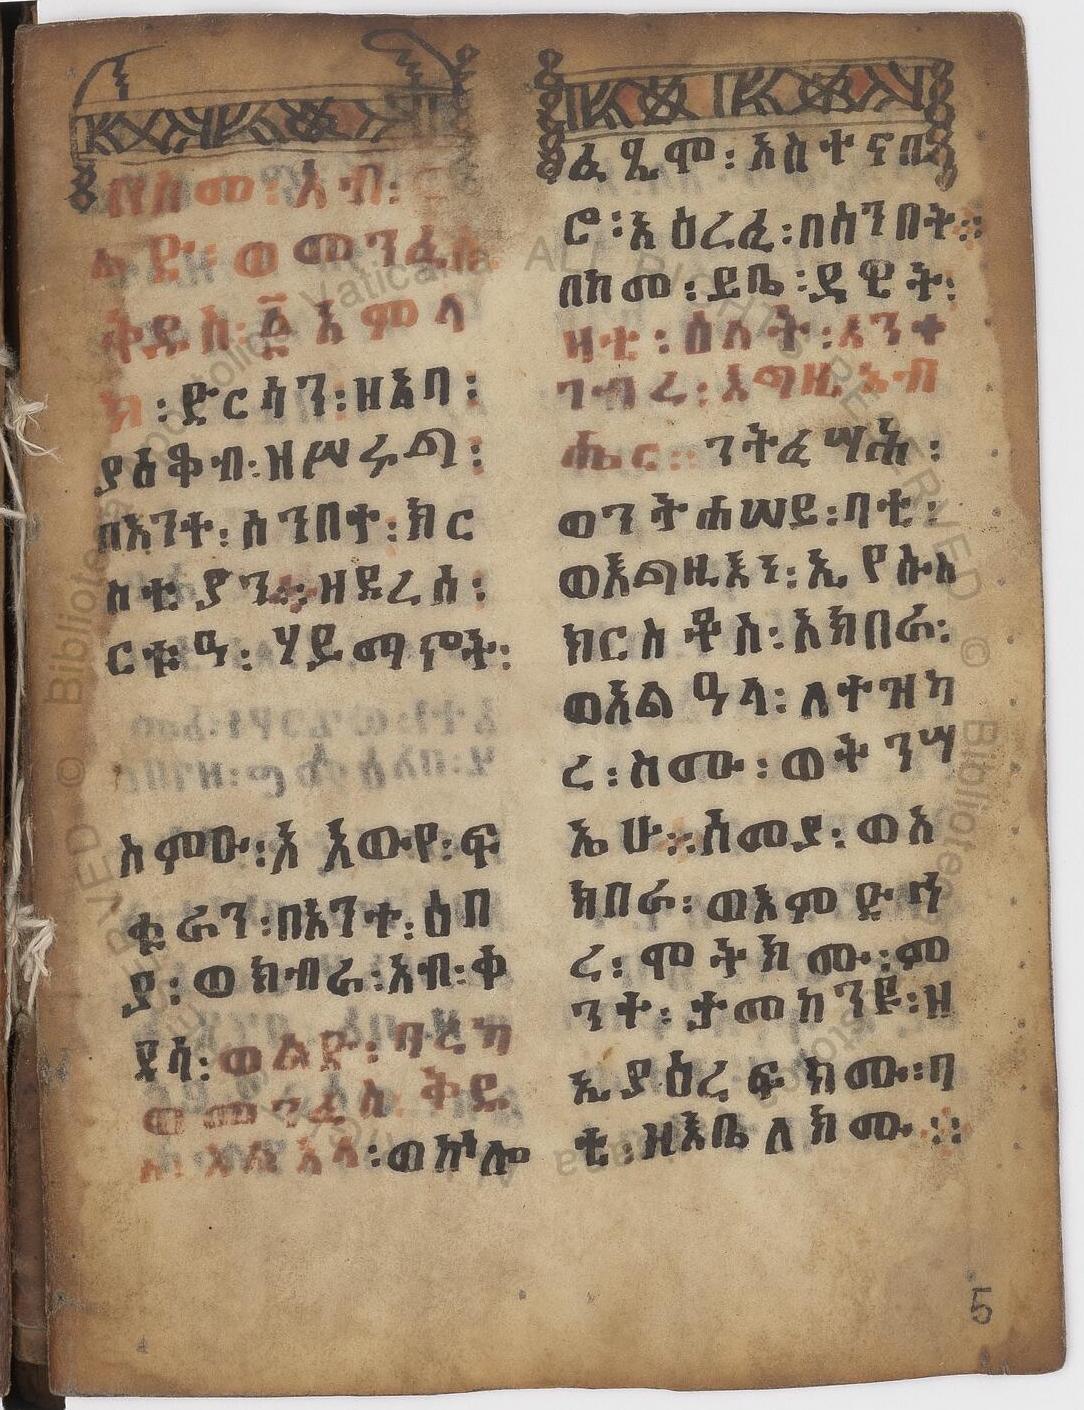 በስመ፡አብ፡
ወመንፈስ
ቅዱስ፡፩አምላ
ክ፡ድርሳን፡ዘአባ፡
ያዕቆብ፡ዘሥሩግ፡
በእንተ፡ሰንበተ፡ክር
ስቲያን፡ዘደረሰ፡
ርቱዓ፡ሃይማኖት፡
ስምዑ፡እአውየ፡ፍ
ቁራን፡በእንተ፡ዕበ
ያ፡ወክብራ፡አብ፡ቀ
ደሳ፡ወልድ፡ባረካ
ወመንፈስ፡ቅዱ
ወኵሎ
ፈጺሞ፡አስተናበ
ሮ፡አዕረፈ፡በሰንበት።
በከመ፡ይቤ፡ዳዊት፡
ዛቲ፡ዕለት፡እንተ
ገብረ፡እግዚአብ
ሔር።ንትፈሣሕ፡
ወንትሐሠይ፡ባቲ፡
ወእግዚእነ፡ኢየሱስ
ክርስቶስ፡አክበራ፡
ወአልዓላ፡ለተዝካ
ረ፡ስሙ፡ወትንሣ
ኤሁ።ሰመያ፡ወአ
ክበራ፡ወእምድኅ
ረ፡ሞትክሙ፡ም
ንተ፡ታመከንዩ፡ዘ
ኢያዕረፍክሙ፡ባ
ቲ፡ዝእቤለክሙ።
5